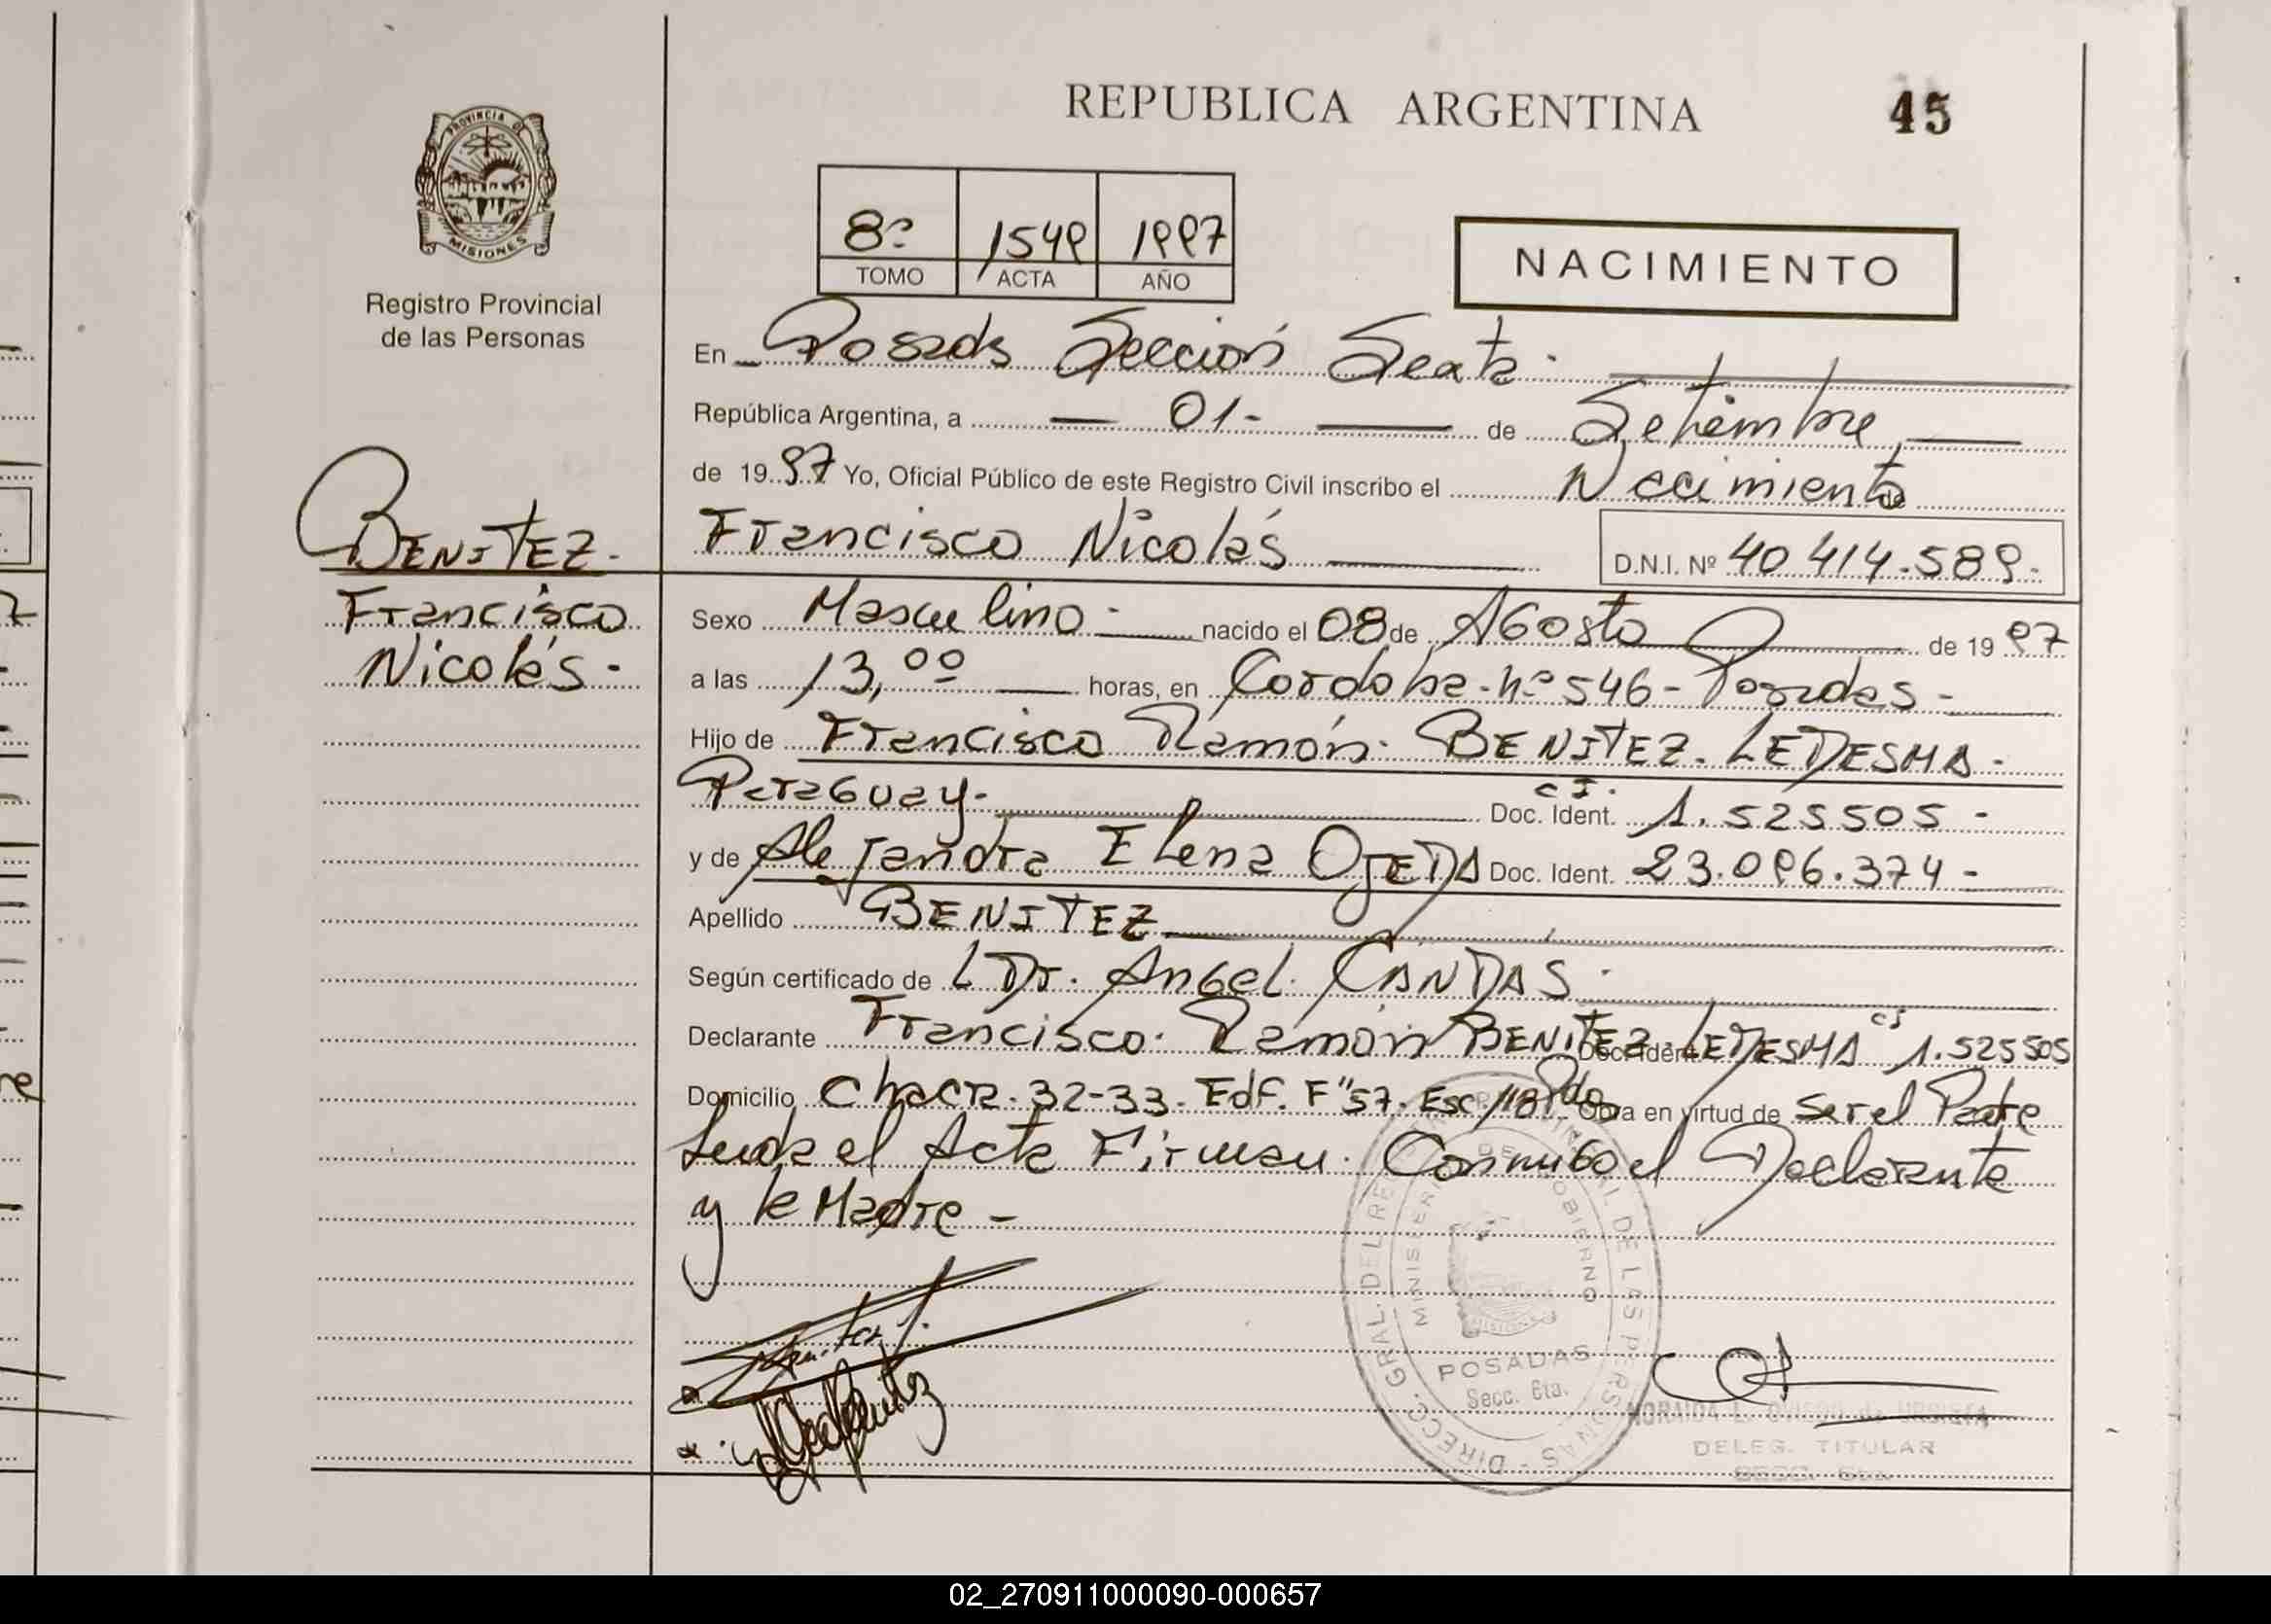 REPUBLICA ARGENTINA
45
PROVINCIA DE
MISIONES
Registro Provincial
de las Personas
8º 1549 1997
TOMO ACTA AÑO
NACIMIENTO
En Posadas Sección Sexta.
República Argentina, a 01- de Setiembre
de 1997 Yo, Oficial Público de este Registro Civil inscribo el Nacimiento de
Francisco Nicolás D.N.I. Nº 40 414.589.
BENITEZ.
Francisco
Nicolás.
Sexo Masculino. nacido el 08 de AGosto de 1997
a las 13,00 horas, en Cordoba.nº546-Posadas-
Hijo de Francisco Ramón. BENITEZ. LEDESMA.
ParaGuay. C I. Doc. Ident. 1.525505-
y de Alejandra Elena OJEDA Doc. Ident. 23.096.374-
Apellido BENITEZ
Según certificado de L Dr. AnGel. CANDAS.
Declarante Francisco. Ramón BENITEZ. LEDESMA Doc. Ident. CI 1.525505
Domicilio Chacra.32-33.Edf. F"57.Esc/118 Pdas Obra en virtud de ser el Padre
Leida el Acta Firman. ConmiGo el Declarante
y la Madre-
DIRECC. GRAL. DEL REG. PROVINCIAL DE LAS PERSONAS
MINISTERIO DE GOBIERNO
MISIONES
POSADAS
Secc. 6ta.
DELEG. TITULAR
SECC. 6ta.
02_270911000090-000657